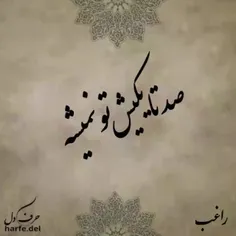 صد تا یکیش تو نمیشه
راغب
حرف دل
harfe.del